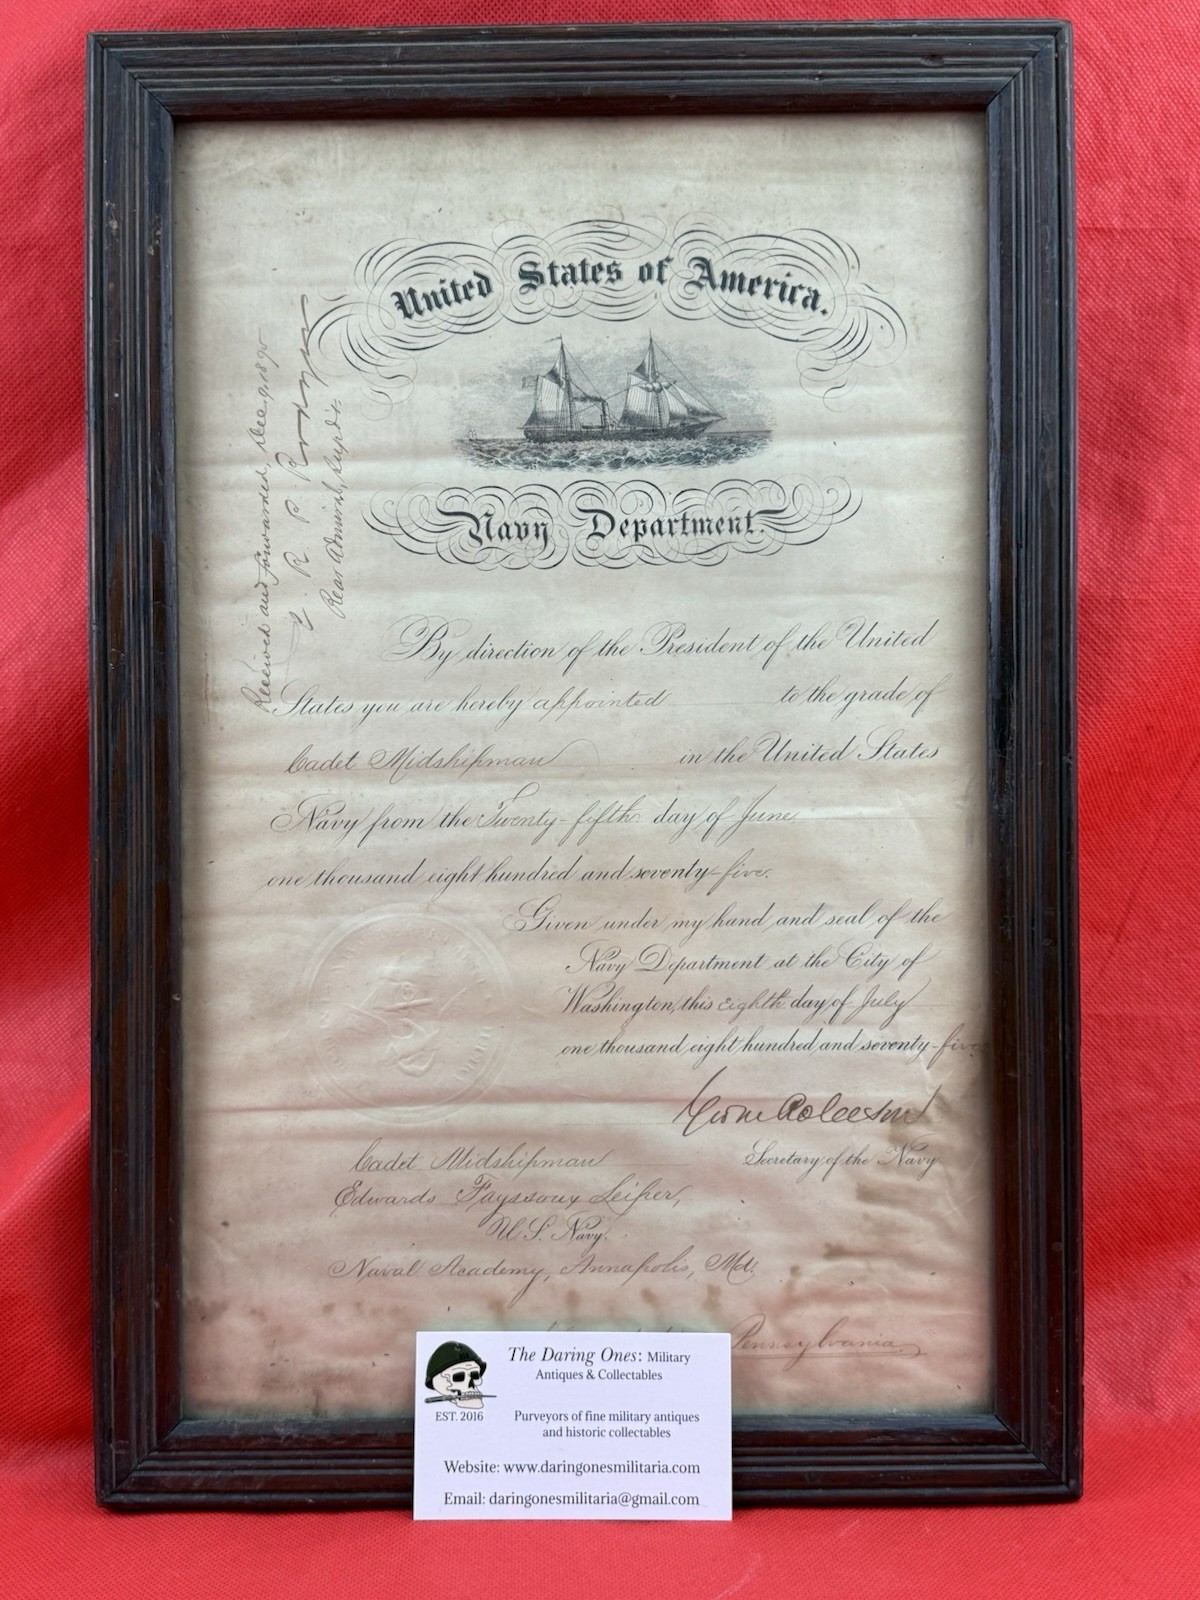 United States of America.
Navy Department.
Received and forwarded, Dec. 9. 1890
C. R. P. Rodgers
Rear Admiral, Supdt.
By direction of the President of the United
States you are hereby appointed to the grade of
Cadet Midshipman in the United States
Navy from the Twenty-fifth day of June
one thousand eight hundred and seventy-five.
Given under my hand and seal of the
Navy Department at the City of
Washington, this eighth day of July
one thousand eight hundred and seventy-five
Geo M Robeson
Secretary of the Navy
Cadet Midshipman
Edwards Fayssoux Leiper,
U.S. Navy.
Naval Academy, Annapolis, Md.
Pennsylvania.
The Daring Ones: Military
Antiques & Collectables
EST. 2016
Purveyors of fine military antiques
and historic collectables
Website: www.daringonesmilitaria.com
Email: daringonesmilitaria@gmail.com